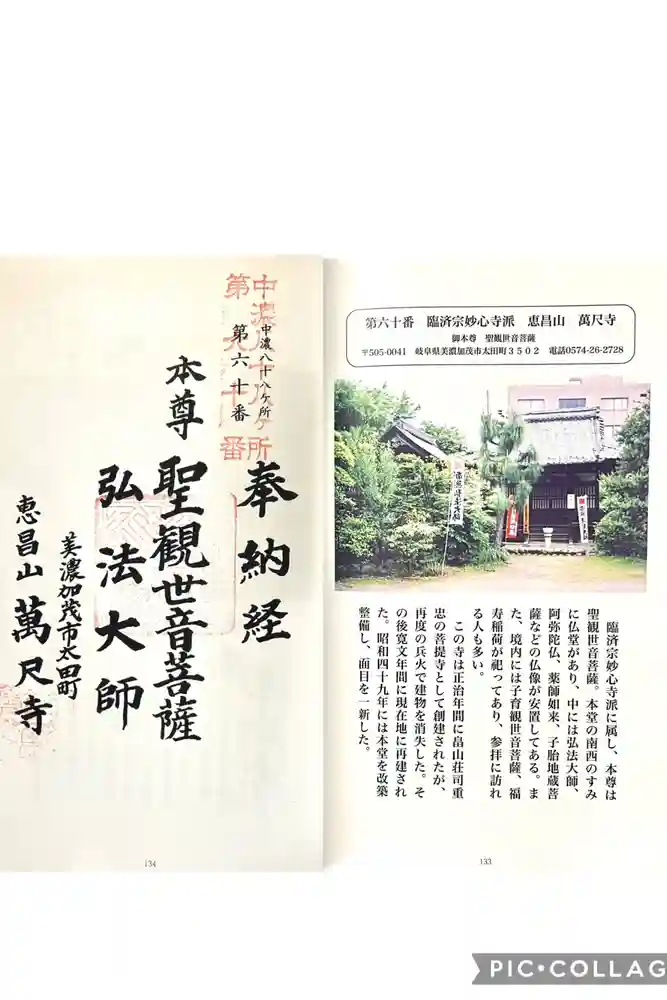 中濃八十八ケ所
第六十番
中濃八十八ケ所
第六十番
奉納経
本尊 聖観世音菩薩
弘法大師
美濃加茂市太田町
恵昌山 萬尺寺
134
第六十番 臨済宗妙心寺派 恵昌山 萬尺寺
御本尊 聖観世音菩薩
〒505-0041 岐阜県美濃加茂市太田町3502 電話0574-26-2728
臨済宗妙心寺派に属し、本尊は
聖観世音菩薩。本堂の南西のすみ
に仏堂があり、中には弘法大師、
阿弥陀仏、薬師如来、子胎地蔵菩
薩などの仏像が安置してある。ま
た、境内には子育観世音菩薩、福
寿稲荷が祀ってあり、参拝に訪れ
る人も多い。
この寺は正治年間に畠山荘司重
忠の菩提寺として創建されたが、
再度の兵火で建物を消失した。そ
の後寛文年間に現在地に再建され
た。昭和四十九年には本堂を改築
整備し、面目を一新した。
133
PIC•COLLAG